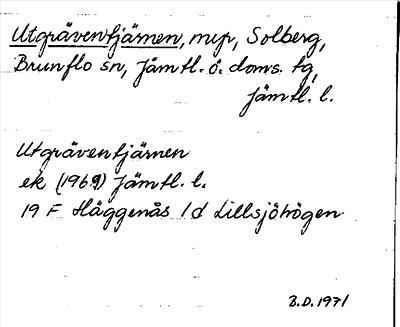 Utgräventjärnen, myr, Solberg,
Brunflo sn, Jämtl. ö. doms. tg,
Jämtl. l.
Utgräventjärnen
ek (1969) Jämtl. l.
19 F Häggenås 1d Lillsjöhögen
B.D. 1971